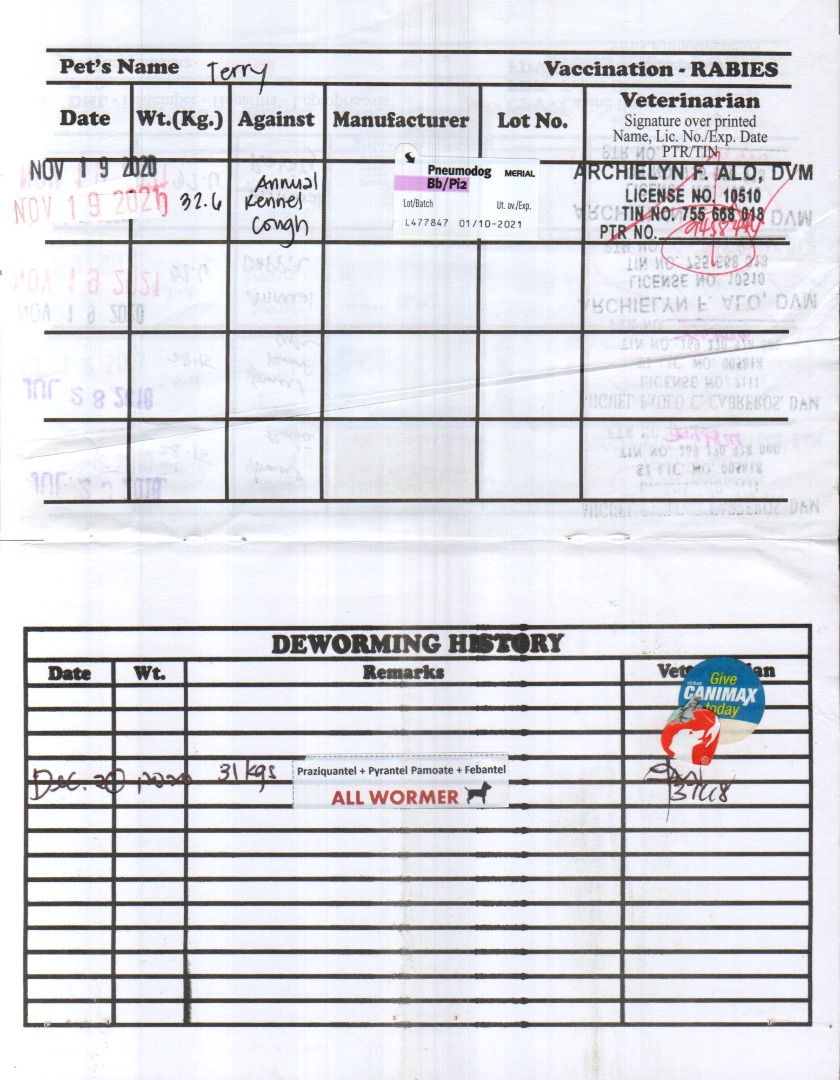 Pet's Name Terry Vaccination - RABIES
Date Wt.(Kg.) Against Manufacturer Lot No. Veterinarian
Signature over printed
Name, Lic. No./Exp. Date
PTR/TIN
NOV 19 2020
NOV 19 2021
32.6
Annual
Kennel
Cough
Pneumodog MERIAL
Bb/Pi2
Lot/Batch Ut. av./Exp.
L477847 01/10-2021
ARCHIELYN F. ALO, DVM
LICENSE NO. 10510
TIN NO. 755 668 018
PTR NO.
DEWORMING HISTORY
Date Wt. Remarks
Give
CANIMAX
today
Dec. 20, 2020 31 kgs
Praziquantel + Pyrantel Pamoate + Febantel
ALL WORMER